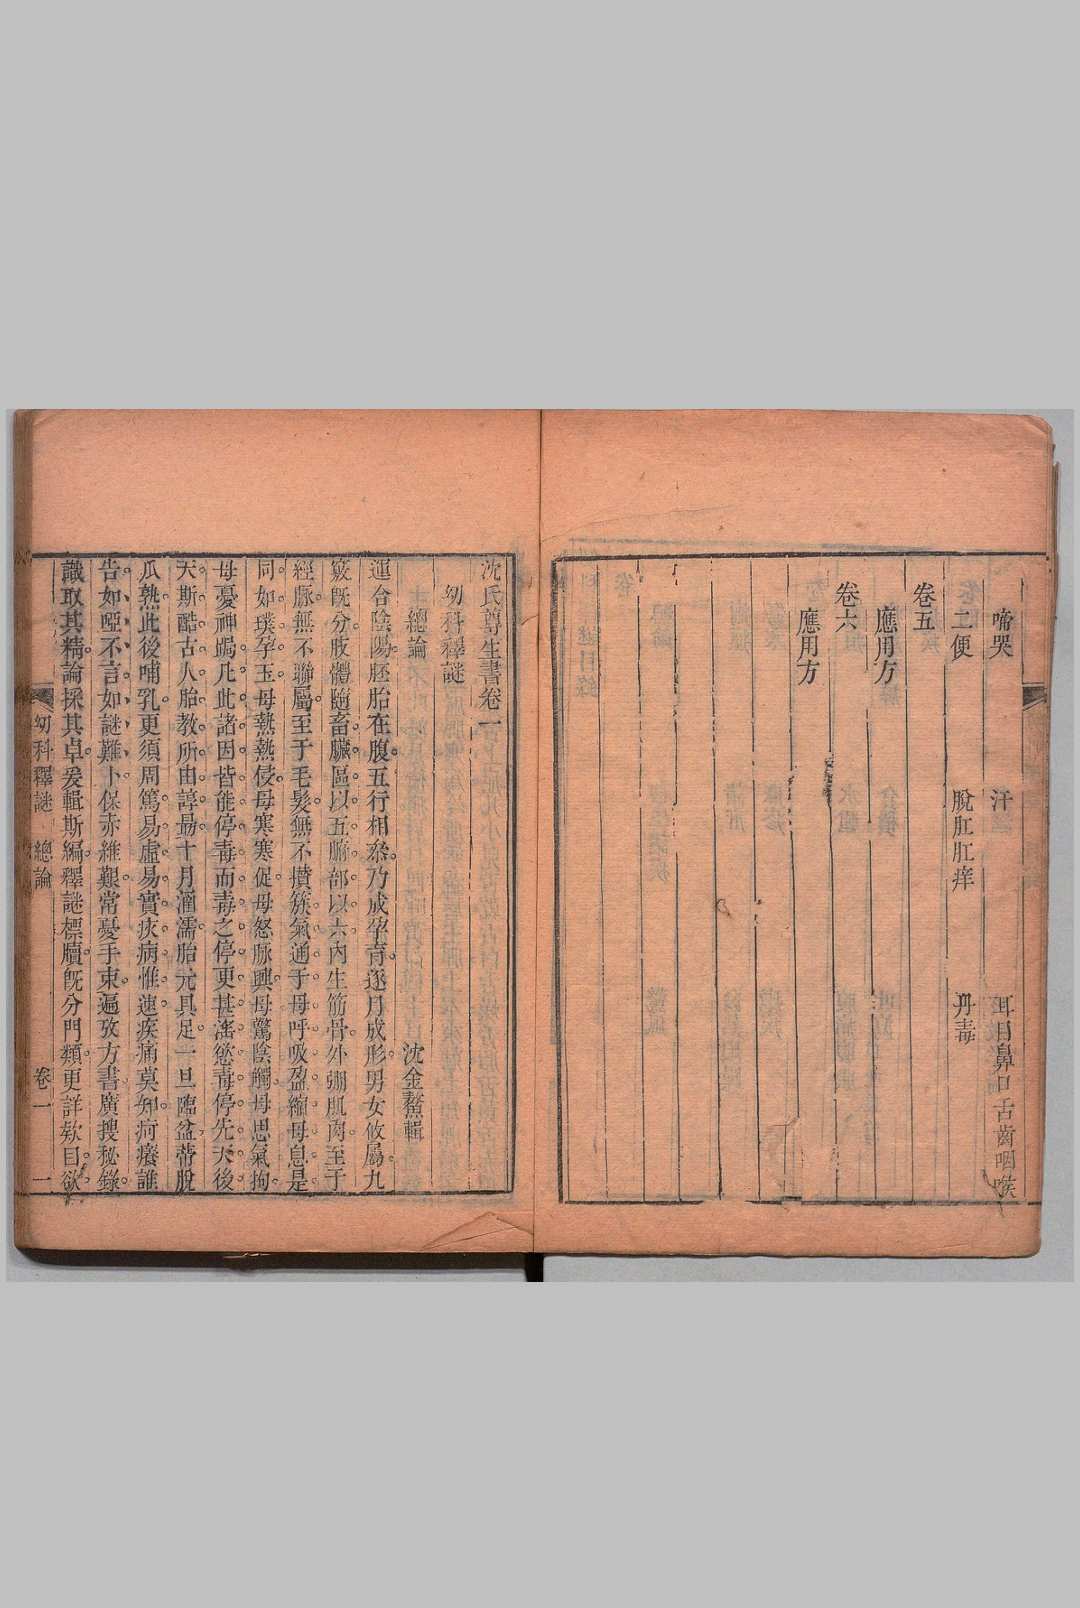 啼哭 汗 耳目鼻口舌齒咽喉
二便 脫肛肛痒 丹毒
卷五
應用方
卷六
應用方
沈氏尊生書卷一
幼科釋謎 沈金鰲輯
總論
運合陰陽胚胎在腹五行相乘乃成孕育逐月成形男女攸屬九
竅既分肢體隨畜臟區以五腑部以六內生筋骨外弸肌肉至于
經脈無不聯屬至于毛髮無不攢簇氣通于母呼吸盈縮母息是
同如璞孕玉母熱熱侵母寒寒促母怒脈興母驚陰觸母思氣拘
母憂神跼凡此諸因皆能停毒而毒之停更甚滛慾毒停先天後
天斯酷古人胎教所由諄朂十月涵濡胎元具足一旦臨盆蒂脫
瓜熟此後哺乳更須周篤易虛易實疢病惟速疾痛莫知疴癢誰
告如啞不言如謎難卜保赤維艱常憂手束遍攷方書廣搜秘錄
識取其精論採其卓爰輯斯編釋謎標牘既分門類更詳欵目欲
幼科釋謎 總論 卷一 一